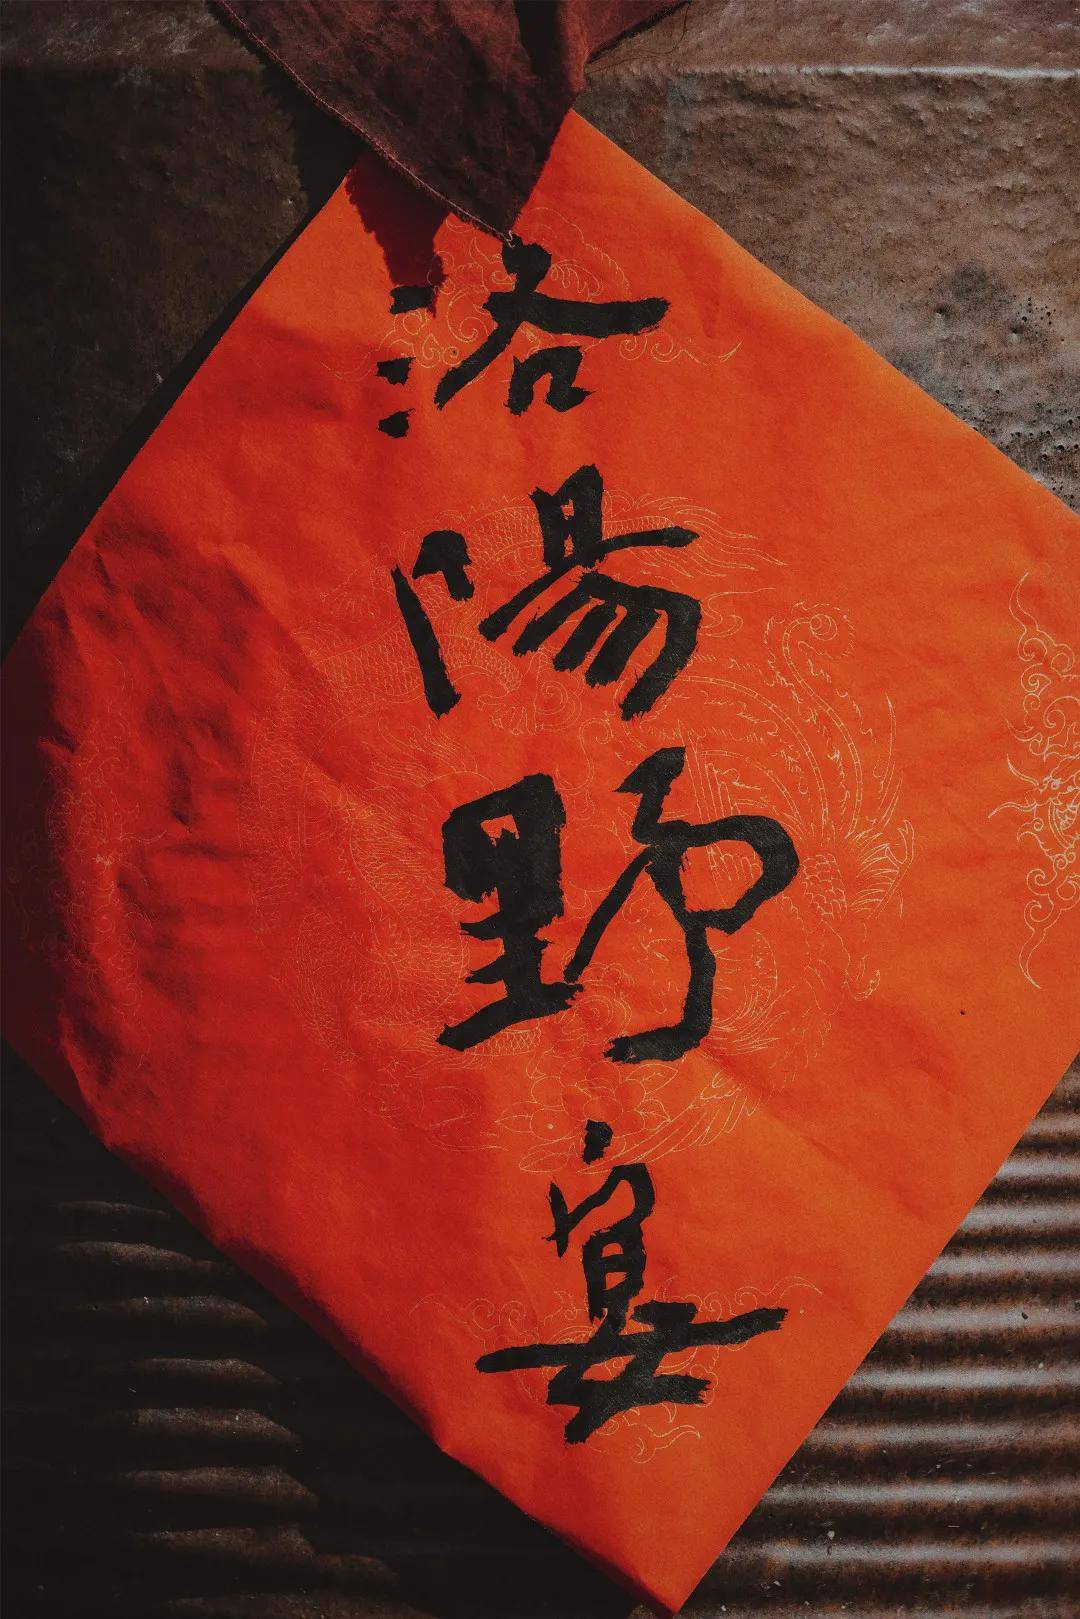 洛陽野宴